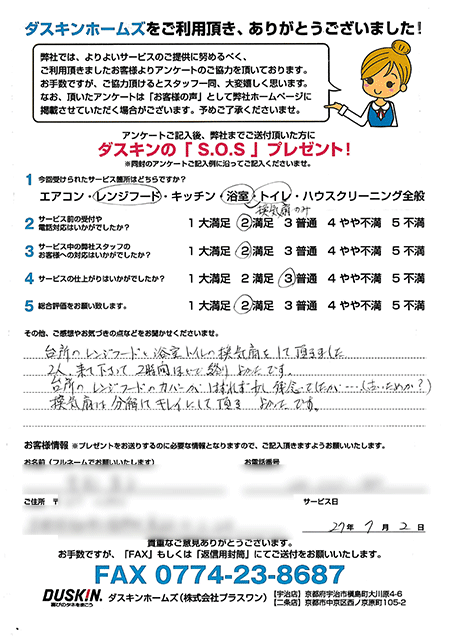 ダスキンホームズをご利用頂き、ありがとうございました！
弊社では、よりよいサービスのご提供に努めるべく、
ご利用頂きましたお客様よりアンケートのご協力を頂いております。
お手数ですが、ご協力頂けるとスタッフ一同、大変嬉しく思います。
なお、頂いたアンケートは「お客様の声」として弊社ホームページに
掲載させていただく場合がございます。予めご了承くださいませ。
アンケートご記入後、弊社までご送付頂いた方に
ダスキンの「S.O.S」プレゼント！
※同封のアンケートご記入例に沿ってご記入くださいませ。
1 今回受けられたサービス箇所はどちらですか？
エアコン・レンジフード・キッチン・浴室・トイレ・ハウスクリーニング全般
換気扇のみ
2 サービス前の受付や電話対応はいかがでしたか？ 1 大満足 2 満足 3 普通 4 やや不満 5 不満
3 サービス中の弊社スタッフのお客様への対応はいかがでしたか？ 1 大満足 2 満足 3 普通 4 やや不満 5 不満
4 サービスの仕上がりはいかがでしたか？ 1 大満足 2 満足 3 普通 4 やや不満 5 不満
5 総合評価をお願い致します。 1 大満足 2 満足 3 普通 4 やや不満 5 不満
その他、ご感想やお気づきの点などをお聞かせくださいませ。
台所のレンジフードと浴室トイレの換気扇をして頂きました
2人来て下さって2時間ほどで終り よかったです。
台所のレンジフードのカバーがはずれず少し残念でしたが…(古いためか？)
換気扇は分解してキレイにして頂き よかったです。
お客様情報 ※プレゼントをお送りするのに必要な情報となりますので、ご記入頂きますようお願いいたします。
お名前（フルネームでお願いいたします） お電話番号
ご住所 〒 サービス日
27年 7月 2日
貴重なご意見ありがとうございます。
お手数ですが、「FAX」もしくは「返信用封筒」にてご送付をお願いいたします。
FAX 0774-23-8687
DUSKIN 喜びのタネをまこう ダスキンホームズ（株式会社プラスワン）
［宇治店］京都府宇治市槇島町大川原4-6
［二条店］京都市中京区西ノ京原町105-2